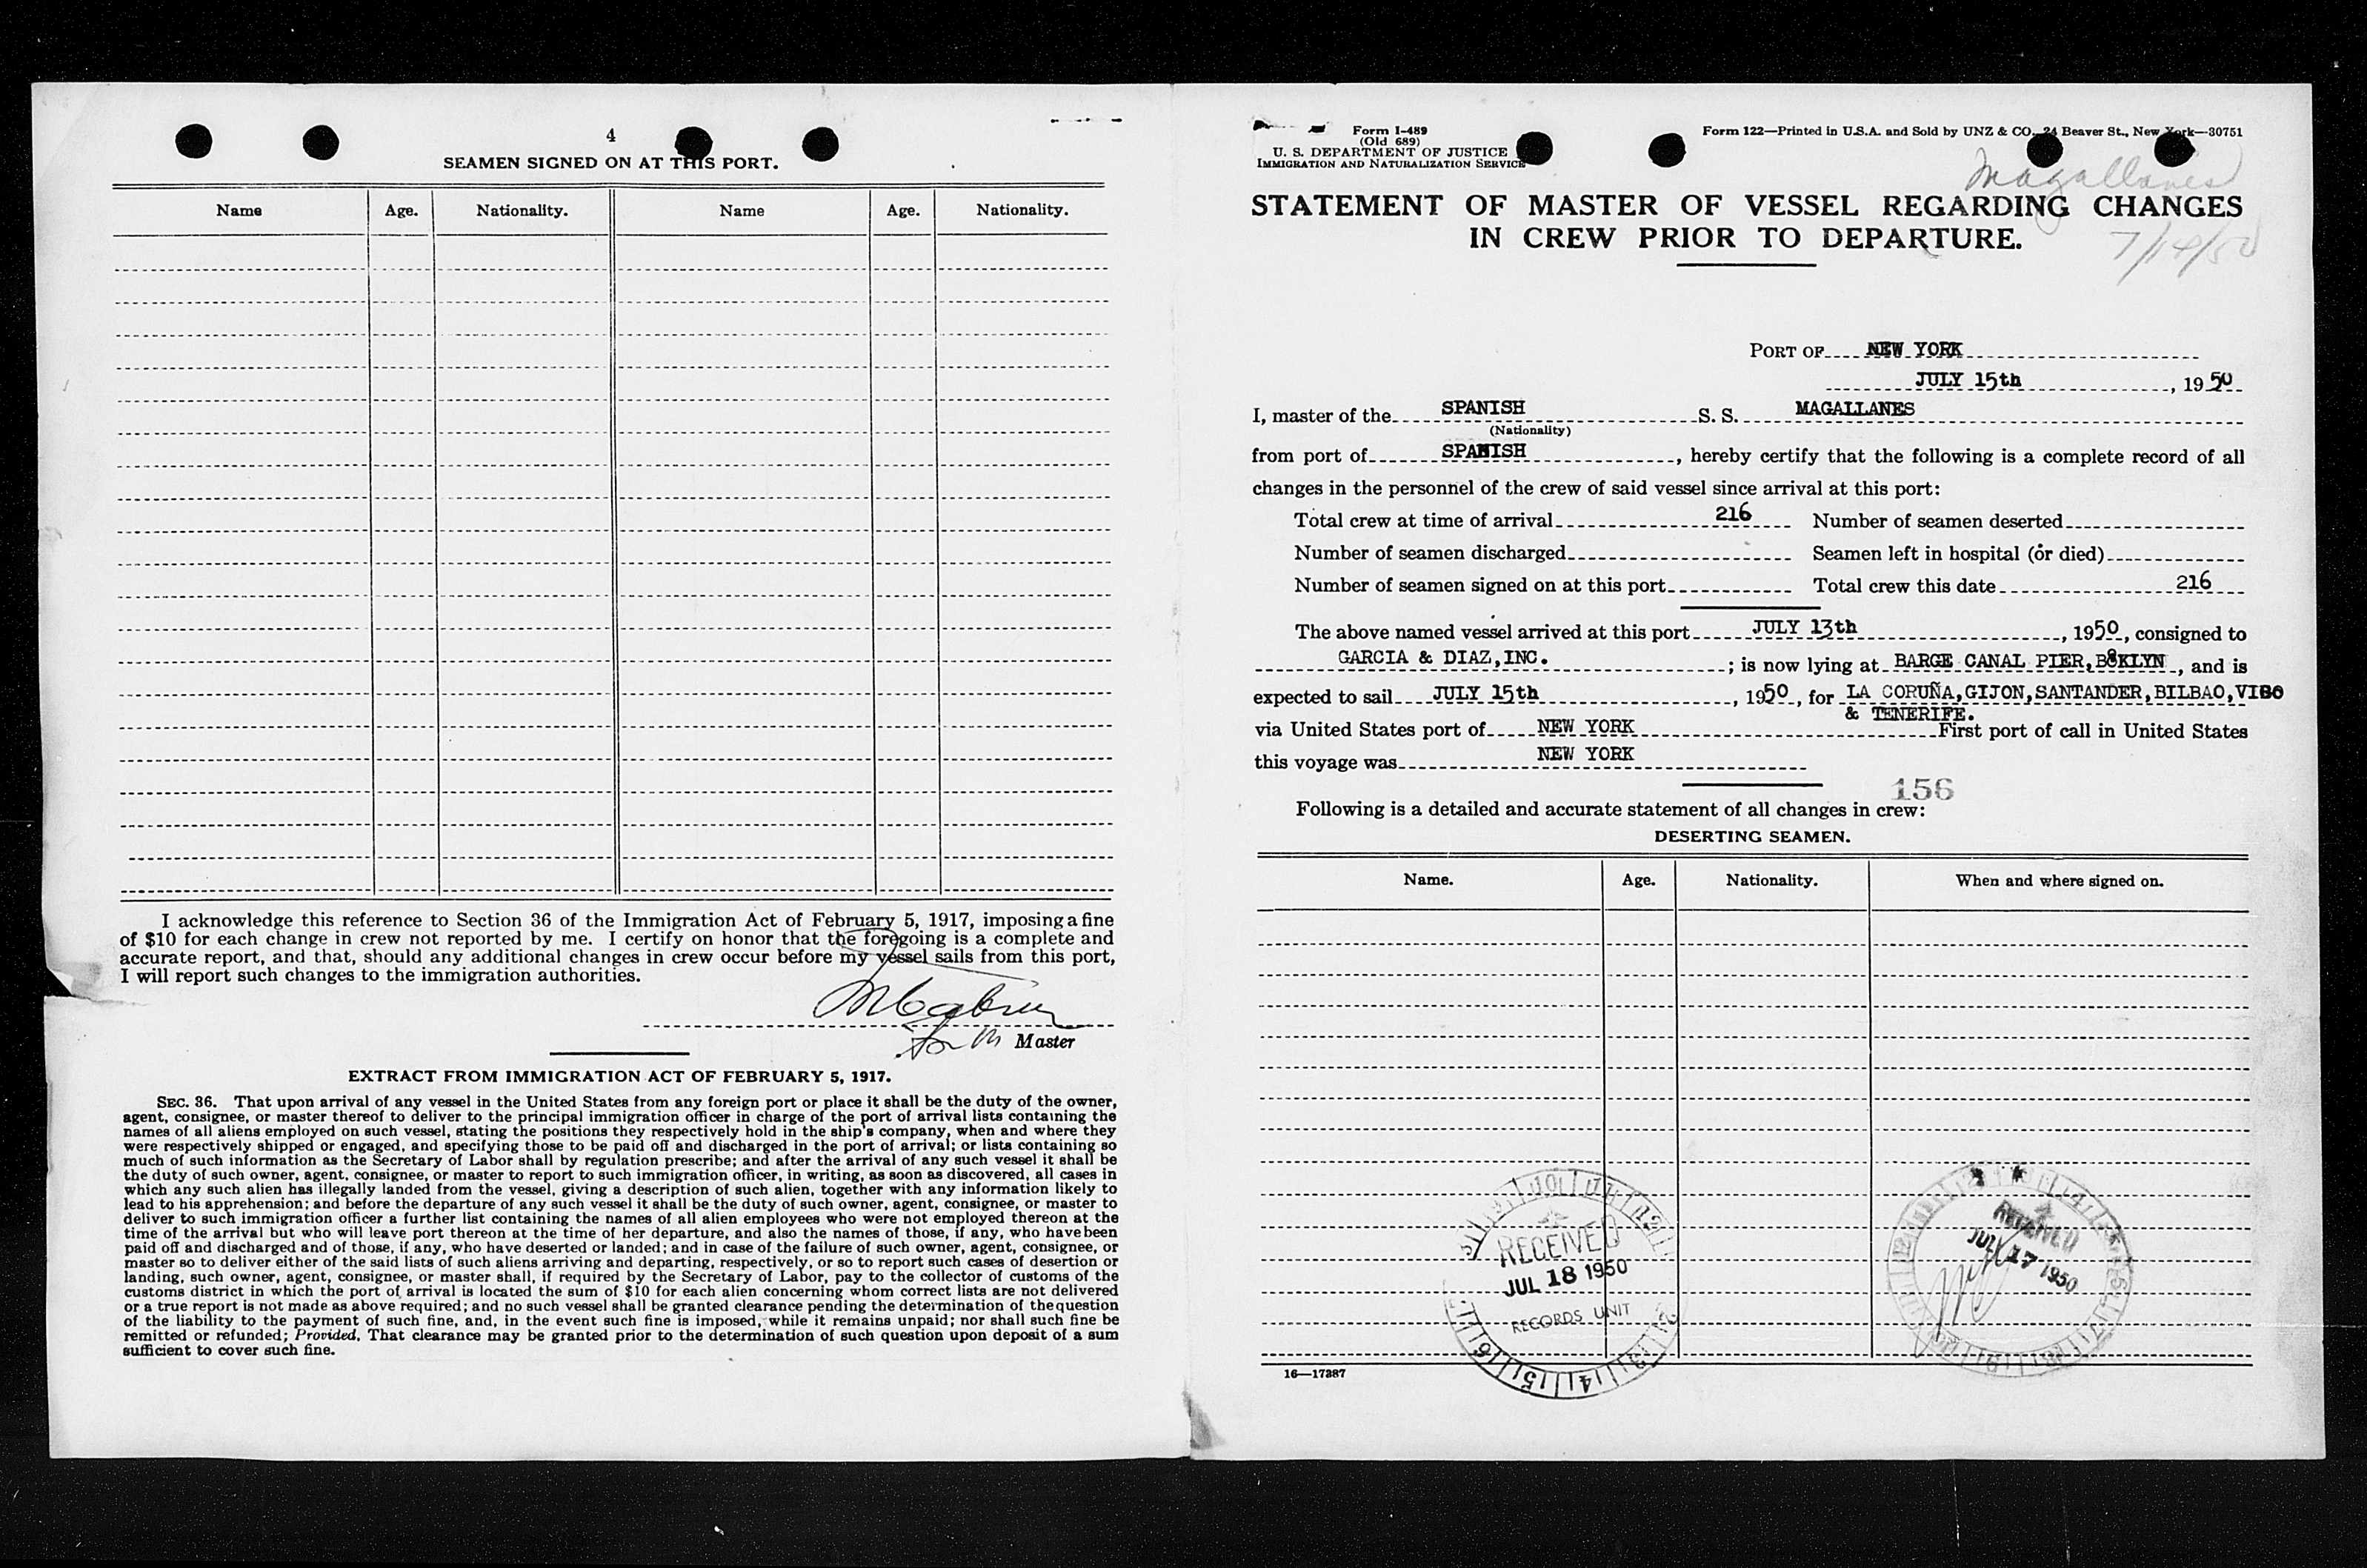 4
SEAMEN SIGNED ON AT THIS PORT.
Name Age. Nationality. Name Age. Nationality.
I acknowledge this reference to Section 36 of the Immigration Act of February 5, 1917, imposing a fine
of $10 for each change in crew not reported by me. I certify on honor that the foregoing is a complete and
accurate report, and that, should any additional changes in crew occur before my vessel sails from this port,
I will report such changes to the immigration authorities.
for Master
EXTRACT FROM IMMIGRATION ACT OF FEBRUARY 5, 1917.
SEC. 36. That upon arrival of any vessel in the United States from any foreign port or place it shall be the duty of the owner,
agent, consignee, or master thereof to deliver to the principal immigration officer in charge of the port of arrival lists containing the
names of all aliens employed on such vessel, stating the positions they respectively hold in the ship's company, when and where they
were respectively shipped or engaged, and specifying those to be paid off and discharged in the port of arrival; or lists containing so
much of such information as the Secretary of Labor shall by regulation prescribe; and after the arrival of any such vessel it shall be
the duty of such owner, agent, consignee, or master to report to such immigration officer, in writing, as soon as discovered, all cases in
which any such alien has illegally landed from the vessel, giving a description of such alien, together with any information likely to
lead to his apprehension; and before the departure of any such vessel it shall be the duty of such owner, agent, consignee, or master to
deliver to such immigration officer a further list containing the names of all alien employees who were not employed thereon at the
time of the arrival but who will leave port thereon at the time of her departure, and also the names of those, if any, who have been
paid off and discharged and of those, if any, who have deserted or landed; and in case of the failure of such owner, agent, consignee, or
master so to deliver either of the said lists of such aliens arriving and departing, respectively, or so to report such cases of desertion or
landing, such owner, agent, consignee, or master shall, if required by the Secretary of Labor, pay to the collector of customs of the
customs district in which the port of arrival is located the sum of $10 for each alien concerning whom correct lists are not delivered
or a true report is not made as above required; and no such vessel shall be granted clearance pending the determination of the question
of the liability to the payment of such fine, and, in the event such fine is imposed, while it remains unpaid; nor shall such fine be
remitted or refunded; Provided, That clearance may be granted prior to the determination of such question upon deposit of a sum
sufficient to cover such fine.
Form I-489
(Old 689)
U. S. DEPARTMENT OF JUSTICE
IMMIGRATION AND NATURALIZATION SERVICE
Form 122—Printed in U.S.A. and Sold by UNZ & CO., 24 Beaver St., New York—30751
Magallanes
STATEMENT OF MASTER OF VESSEL REGARDING CHANGES
IN CREW PRIOR TO DEPARTURE.
7/14/50
PORT OF NEW YORK
JULY 15th, 1950
I, master of the SPANISH S. S. MAGALLANES
(Nationality)
from port of SPANISH, hereby certify that the following is a complete record of all
changes in the personnel of the crew of said vessel since arrival at this port:
Total crew at time of arrival 216 Number of seamen deserted
Number of seamen discharged Seamen left in hospital (or died)
Number of seamen signed on at this port Total crew this date 216
The above named vessel arrived at this port JULY 13th, 1950, consigned to
GARCIA & DIAZ, INC.; is now lying at BARGE CANAL PIER, B8KLYN, and is
expected to sail JULY 15th, 1950, for LA CORUÑA, GIJON, SANTANDER, BILBAO, VIGO
& TENERIFE.
via United States port of NEW YORK First port of call in United States
this voyage was NEW YORK
156
Following is a detailed and accurate statement of all changes in crew:
DESERTING SEAMEN.
Name. Age. Nationality. When and where signed on.
RECEIVED
JUL 18 1950
RECORDS UNIT
RECEIVED
JUL 17 1950
16—17387